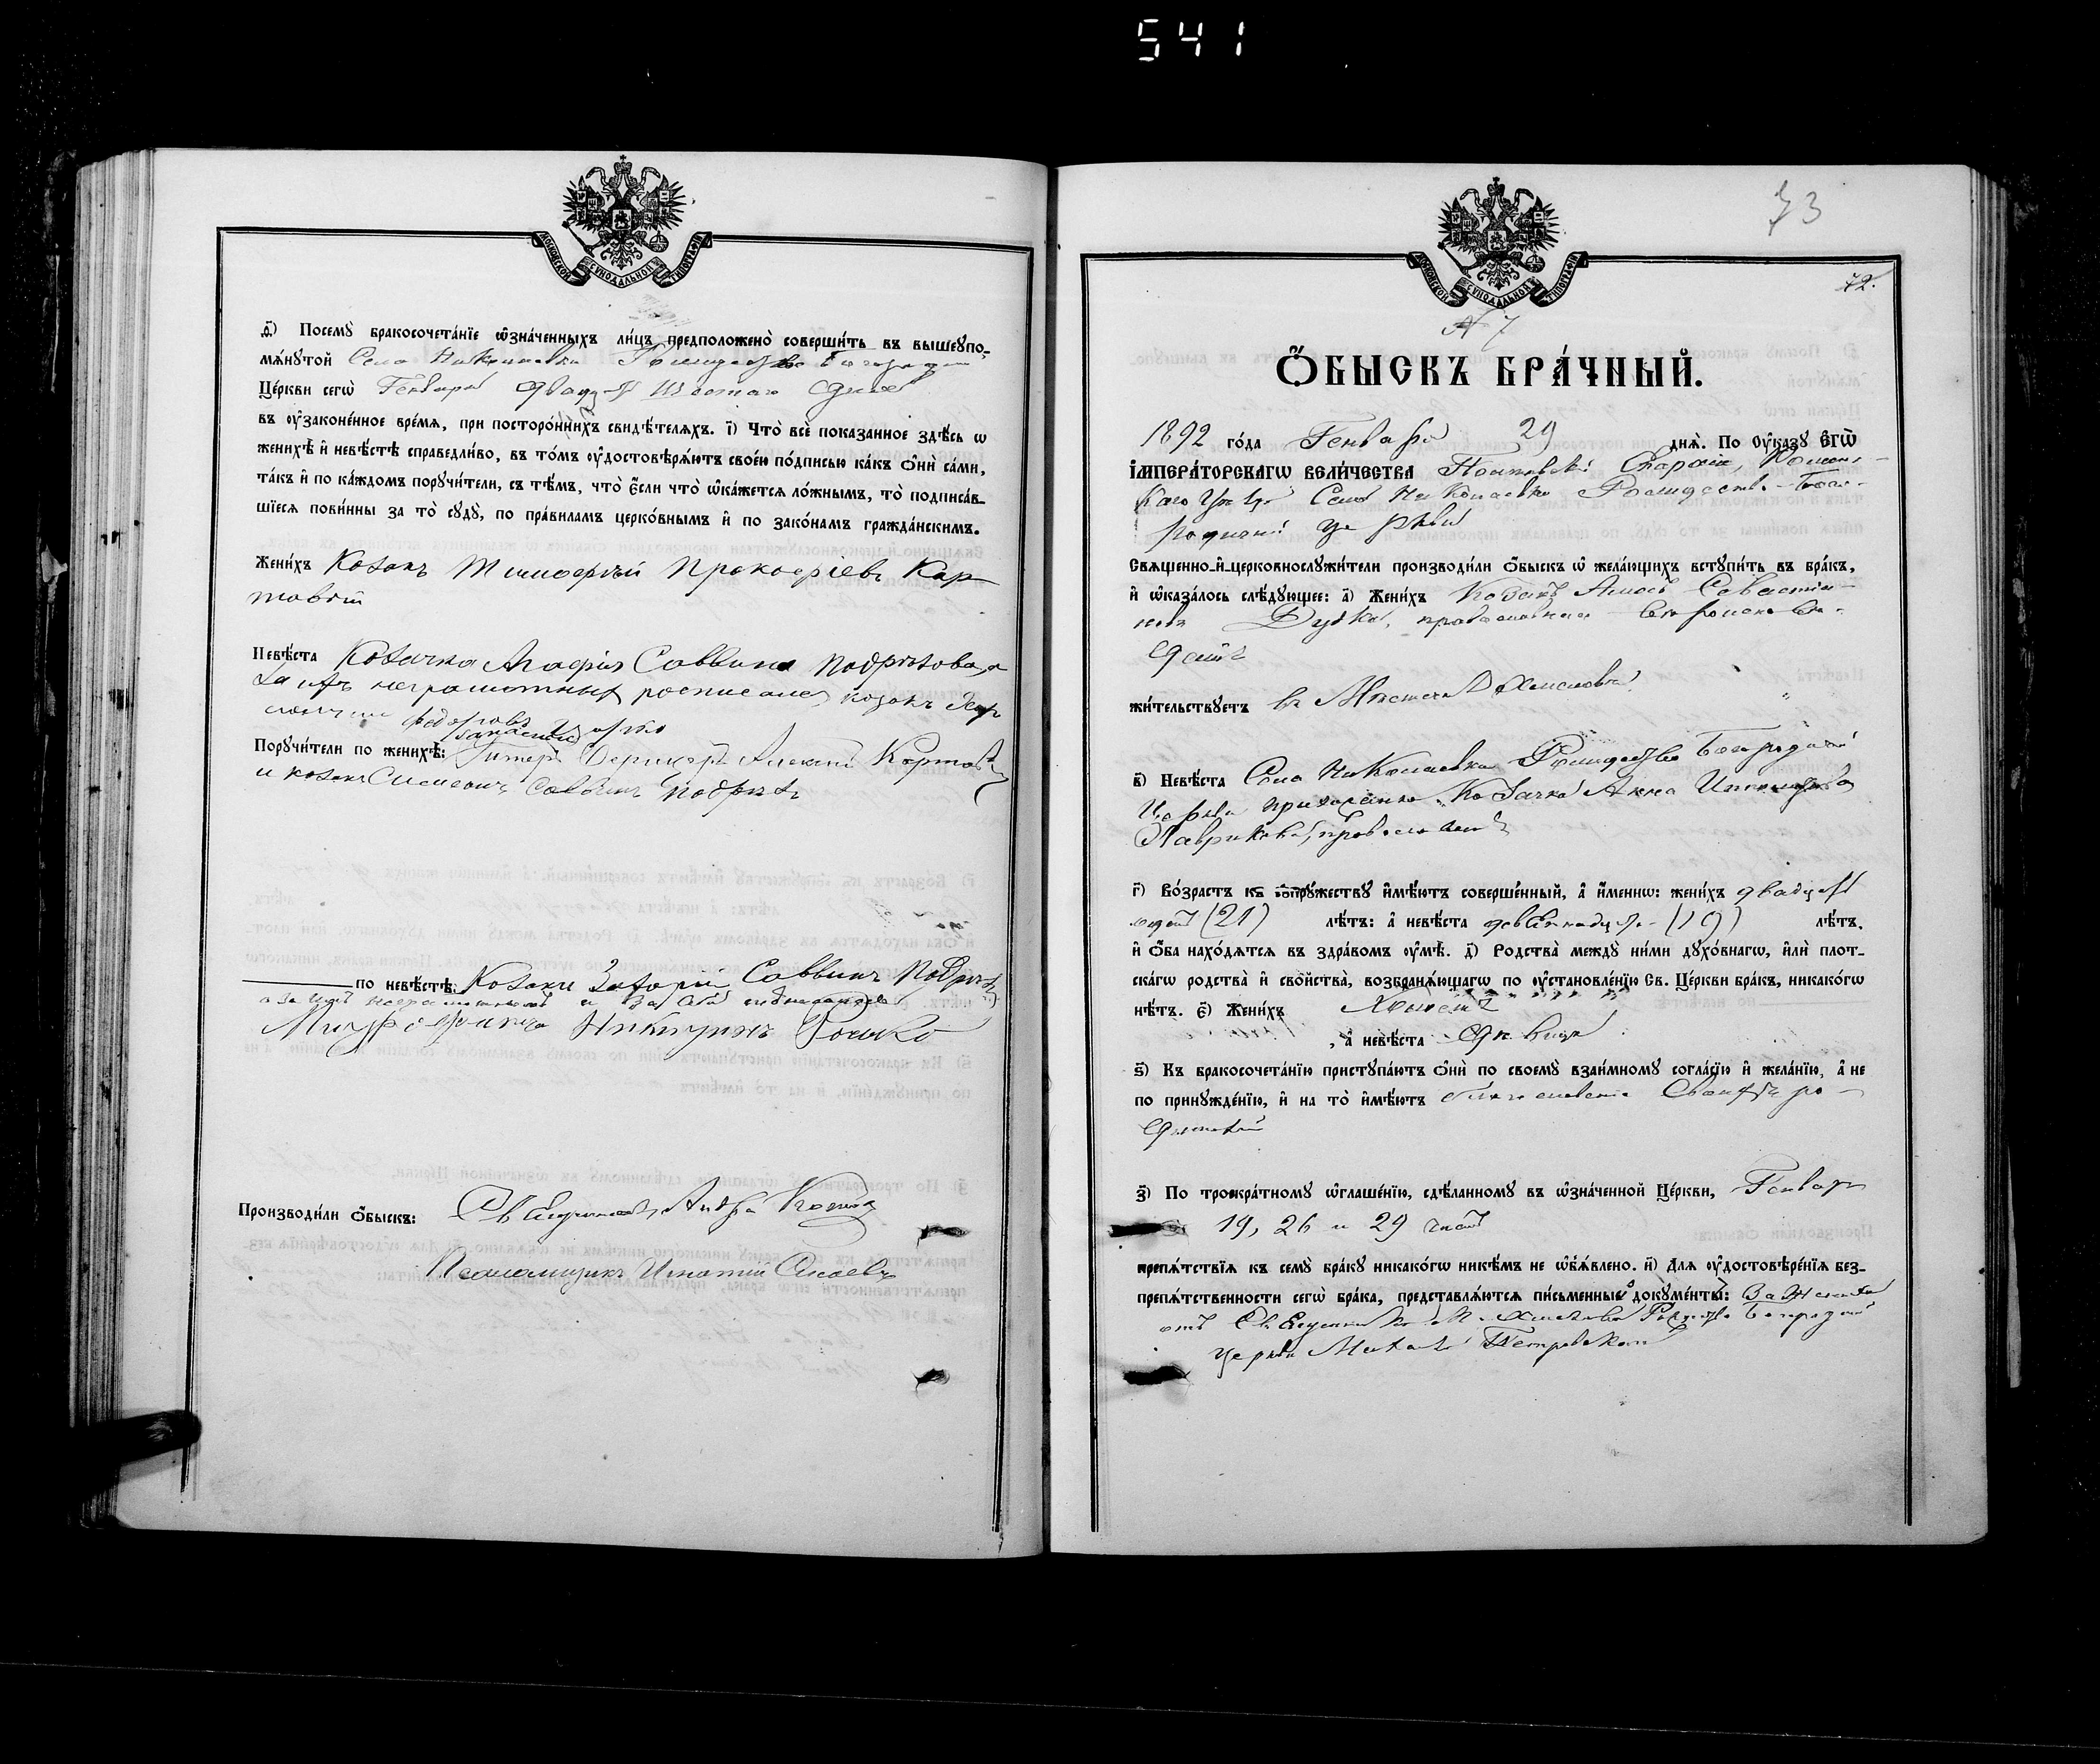 541
МОСКОВСКОЙ СѴНОДАЛЬНОЙ ТИПОГРАФІИ
ѳ҃) Посемꙋ̀ бракосочета́нїе ѡ҆зна́ченныхъ ли́цъ предположено̀ соверши́ть въ вышеꙋпо-
мѧ́нꙋтой Села Николаевки Рождество Богородич
Це́ркви сегѡ̀ Генваря двадцать шестаго дня
въ ᲂу҆зако́не́нное вре́мѧ, при посторо́ннихъ свидѣ́телѧхъ. і҃) Что̀ всѐ пока́занное здѣ́сь ѡ
женихѣ̀ и҆ невѣ́стѣ справедли́во, въ то́мъ ᲂу҆достовѣрѧ́ютъ свое́ю по́дписью ка́къ ѻ҆нѝ са́ми,
та́къ и҆ по ка́ждомъ порꙋчи́тели, съ тѣ́мъ, что̀ є҆́сли что̀ ѡ҆ка́жется ло́жнымъ, то̀ подписа́в-
шїеся пови́нны за то̀ сꙋдꙋ̀, по пра́виламъ церко́внымъ и҆ по зако́намъ гражда́нскимъ.
Жени́хъ Козакъ Тимофей Прокофіевъ Кар-
товый
Невѣ́ста Козачка Агафія Саввина Подрѣзова, а
за ихъ неграмотныхъ росписался козакъ
Федоровъ
Порꙋчи́тели по женихѣ̀: запасный Унтеръ Офицеръ Алексій Картовый
и козакъ Симеонъ Саввинъ Подрѣз
по невѣ́стѣ: Козаки Захарій Саввинъ Подрѣз
а за ихъ неграмотныхъ и за себя
Митрофанъ Никитинъ Рошко
Производи́ли ѻ҆́быскъ: Священникъ Андрей
Псаломщикъ Игнатій
73
МОСКОВСКОЙ СѴНОДАЛЬНОЙ ТИПОГРАФІИ
72.
№ 7
Ѻ҆БЫСКЪ БРА́ЧНЫЙ.
1892 го́да Генваря 29 днѧ̀. По ᲂу҆ка́зꙋ Є҆ГѠ̀
І҆МПЕРА́ТОРСКАГѠ ВЕЛИ́ЧЕСТВА Полтавской Епархіи, Ромен-
скаго Уѣзда Села Николаевки Рождество-Бого-
родичной церкви
Свѧще́нно-и҆-церковнослꙋжи́тели производи́ли ѻ҆́быскъ ѡ҆ жела́ющихъ встꙋпи́ть въ бра́къ,
и҆ ѡ҆каза́лось слѣ́дꙋющее: а҃) Жени́хъ Козакъ Амосъ Севастія-
новъ Дудка, православнаго вѣроисповѣ-
данія
жи́тельствꙋетъ въ Мѣстечкѣ Хмеловѣ
в҃) Невѣ́ста Села Николаевки Рождество Богородичной
Церкви прихожанка, Козачка Анна
Лаврикова, православная
г҃) Во́зрастъ къ сꙋпрꙋ́жествꙋ и҆мѣ́ютъ соверше́нный, а҆ и҆́менно: жени́хъ двадцать
одинъ (21) лѣ́тъ: а҆ невѣ́ста девятнадцать (19) лѣ́тъ.
и҆ ѻ҆́ба нахо́дѧтсѧ въ здра́вомъ ᲂу҆мѣ̀. д҃) Родства̀ междꙋ̀ ни́ми дꙋхо́внагѡ, и҆лѝ плот-
ска́гѡ родства̀ и҆ сво́йства̀, возбранѧ́ющагѡ по ᲂу҆становле́нїю Св. Це́ркви бра́къ, никако́гѡ
нѣ́тъ. є҃) Жени́хъ Холостъ
, а҆ невѣ́ста дѣвица
ѕ҃) Къ бракосочета́нїю пристꙋпа́ютъ ѻ҆нѝ по своемꙋ̀ взаи́мномꙋ согла́сїю и҆ жела́нїю, а҆ не
по принꙋжде́нїю, и҆ на то̀ и҆мѣ́ютъ благословеніе своихъ ро-
дителей
з҃) По троекра́тномꙋ ѡ҆глаше́нїю, сдѣ́ланномꙋ въ ѡ҆зна́ченной Це́ркви, Генваря
19, 26 и 29 чиселъ
препѧ́тствїѧ къ семꙋ̀ бра́кꙋ никако́гѡ никѣ́мъ не ѡ҆б̾ѧ́влено. и҃) Для ᲂу҆достовѣре́нїѧ без-
препѧ́тственности сегѡ̀ бра́ка, представлѧ́ются пи́сьменные докꙋме́нты: За Жениха
отъ Священника М. Хмелова Рождество Богородичной
церкви Петровскаго